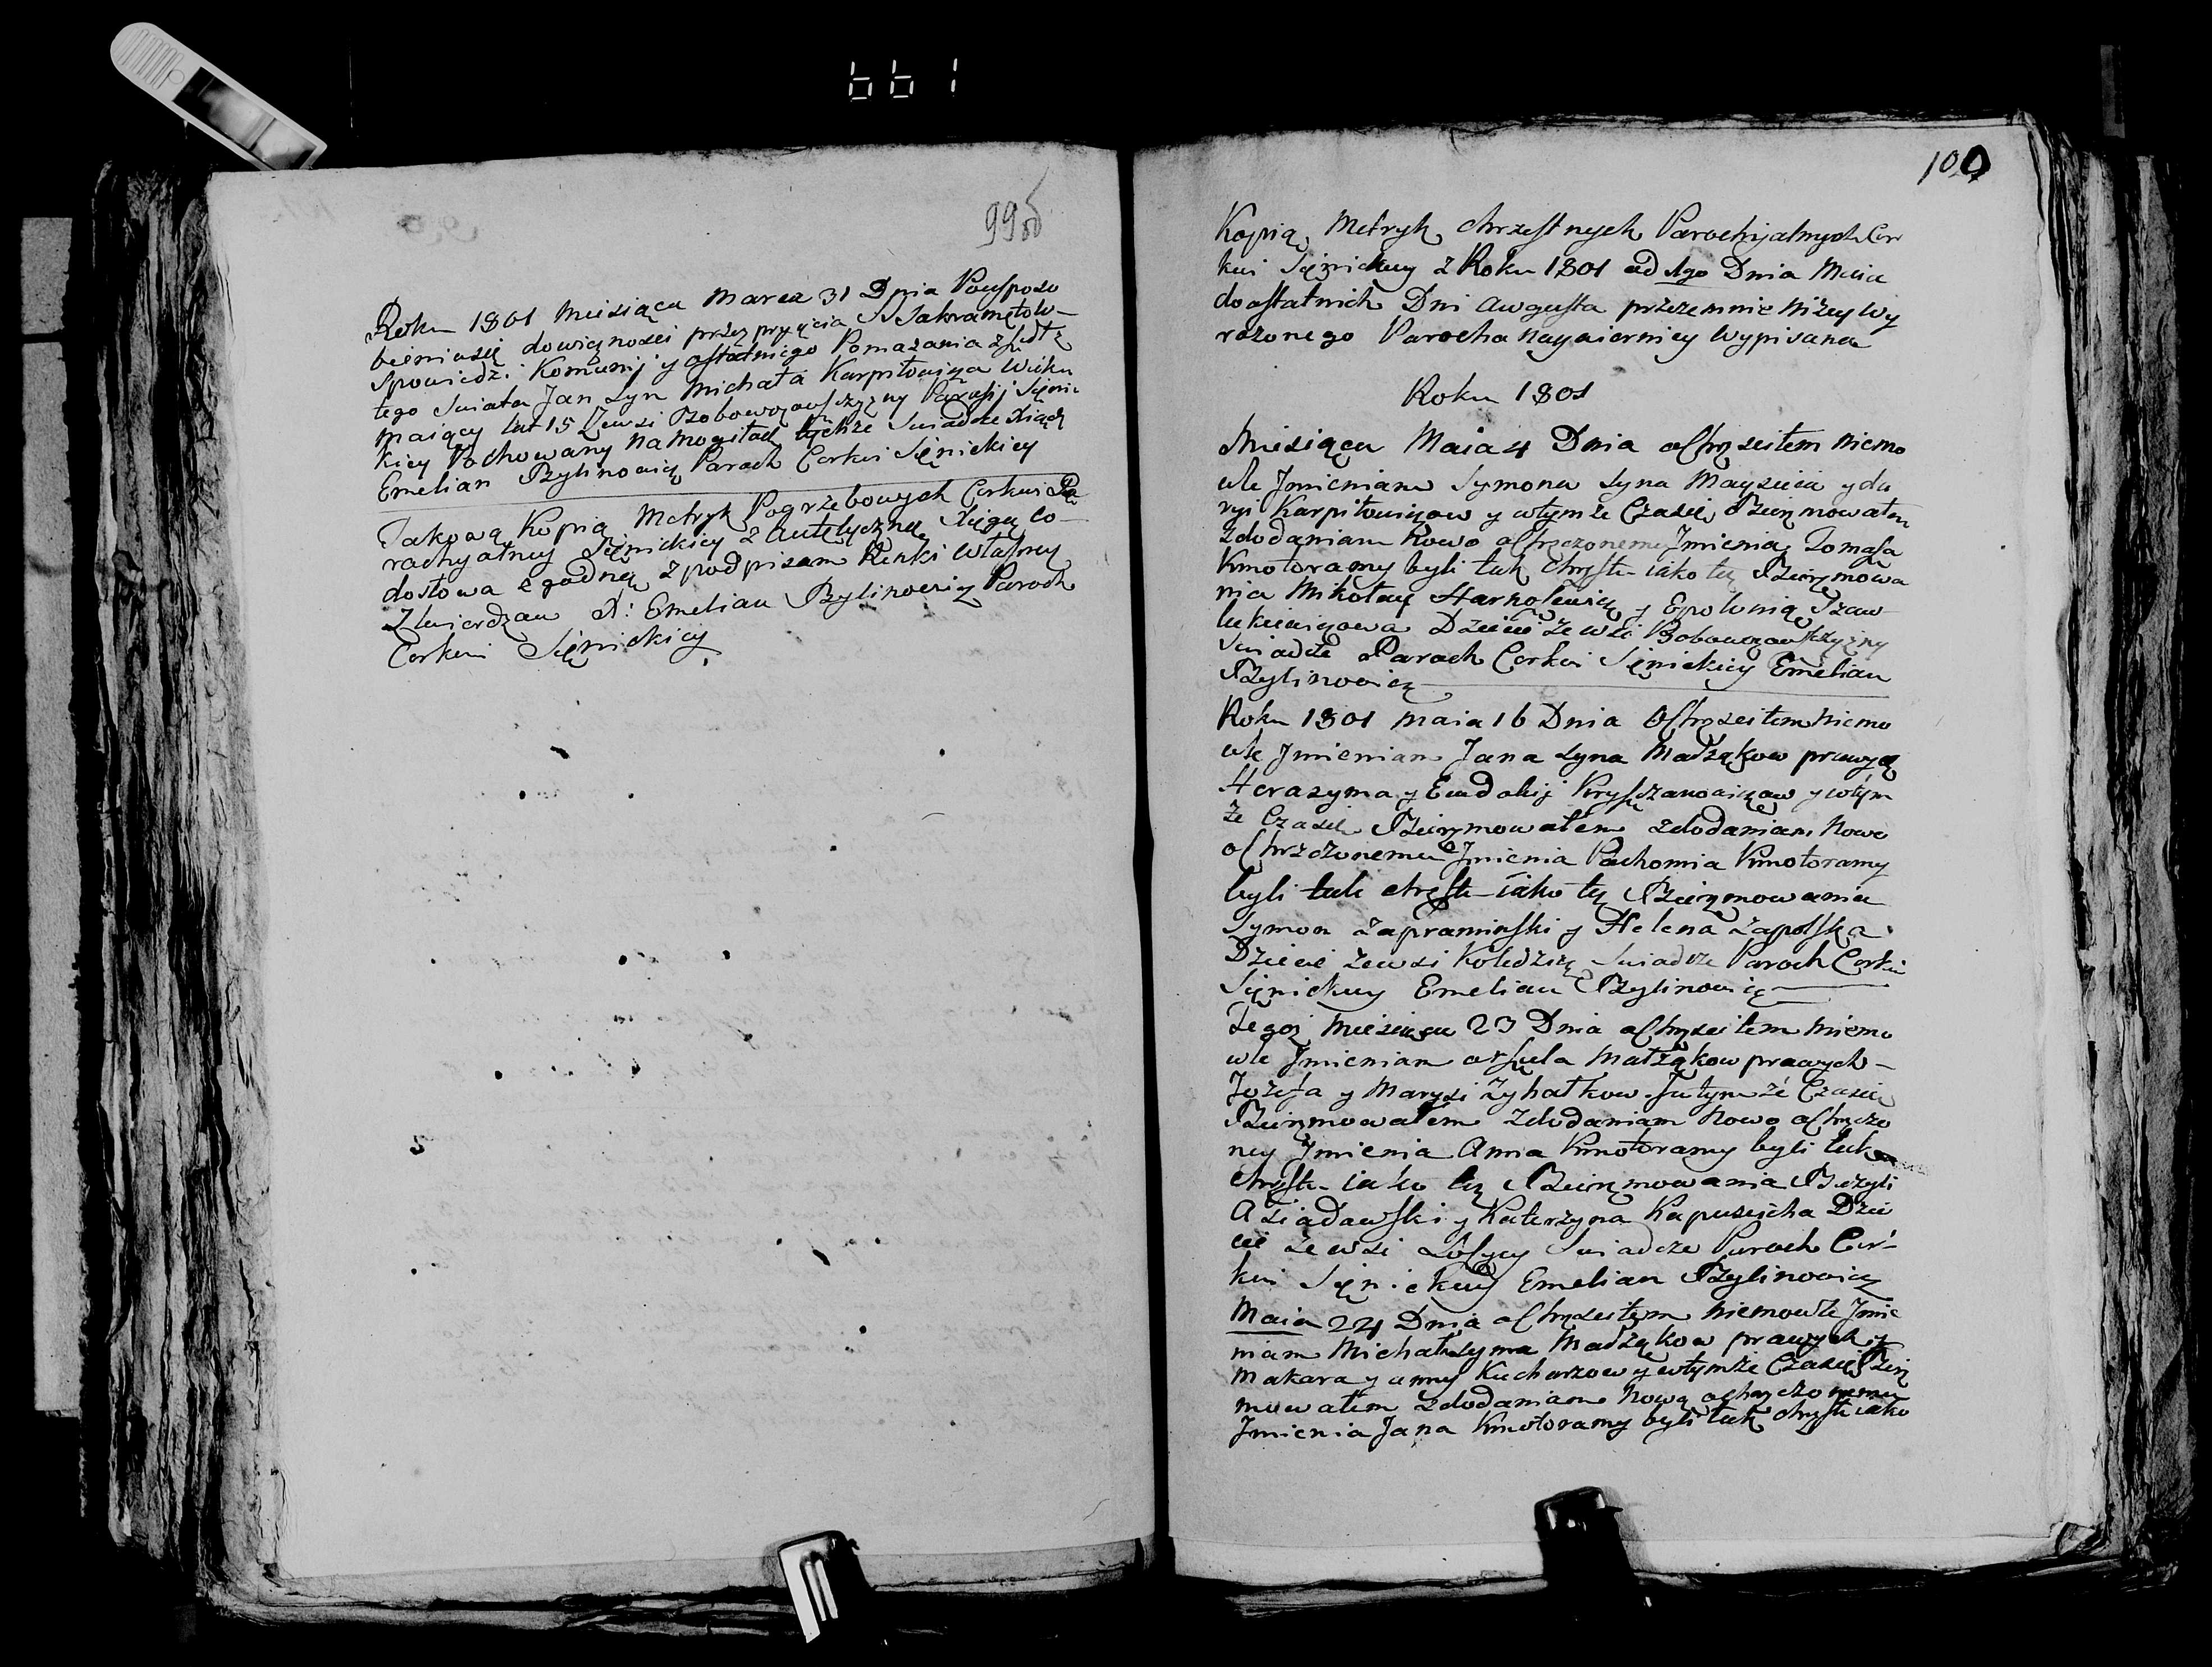 661
99об
Roku 1801 Miesiąca Marca 31 Dnia Pousposo
bieniusię dowięznosci przez pryięcia SS Sakramętow
Spowiedzi Komunij y ostatniego Pomazania zszedł z
tego Swiata Jan Syn Michała Karpitowicza Wieku
maiący lat 15 Zewsi Bobowozowszczyzny Parafij Sięnic
kiey Pochowany na Mogiłach tychże Swiadcze Xiądz
Emelian Bylinowicz Paroch Cerkwi Sięnickiey
Takową Kopią Metryk Pogrzebowych Cerkwi Pa
rochyalney Sięnickiey z Autętyczną Xięgą co
dosłowa zgodną z podpisem Renki własney
Ztwierdzam X: Emelian Bylinowicz Paroch
Cerkwi Sięnickiey
100
Kopią Metryk chrzestnych Parochyalnych Cer
kwi Sięnickiey z Roku 1801 od 1go Dnia Maia
do ostatnich Dni Awgusta przezemnie niżey wy
rażonego Parocha naywierniey wypisana
Roku 1801
Miesiąca Maia 4 Dnia ochrzciłem niemo
wle Jmieniam Symona Syna Maysieia y da
ryi Karpitowiczow y wtymże Czasie Bierzmowałem
zdodaniam Nowo ochrzczonemu Jmienia Tomasza
Kmotoramy byli tak chrzstu iako też Bierzmowa
nia Mikołay Harkolewicz y Epolonia Szaw
lukiewiczowa Dziecie ze wsi Bobowozowszczyzny
Swiadcze Paroch Cerkwi Sięnickiey Emelian
Bylinowicz
Roku 1801 maia 16 Dnia Ochrzciłem niemo
wle Jmieniam Jana Syna Małżąkow prawych
Herasyma y Ewdokij Kryszczanowiczow y wtym
że Czasie Bierzmowałem zdodaniam Nowo
ochrzczonemu Jmienia Pachomia Kmotoramy
byli tak chrzstu iako też Bierzmowania
Symon Zapraminski y Helena Zapolska
Dziecie zewsi Swiadcze Paroch Cerkwi
Sięnickiey Emelian Bylinowicz
Tegoż Miesiąca 23 Dnia ochrzciłem niemo
wle Jmieniam Orszula Małżąkow prawych
Jozefa y Marysi Zyhałkow tutymże Czasie
Bierzmowałem zdodaniam Nowo ochrzczo
ney Jmienia Anna Kmotoramy byli tak
chrzstu iako też Bierzmowania Bazyli
Asiadawski y Katerzyna Kapuscicha Dzie
cie ze wsi Swiadcze Paroch Cer
kwi Sięnickiey Emelian Bylinowicz
Maia 24 Dnia ochrzciłem niemowle Jmie
niam Michał Syna Małżąkow prawych
Makara y anny Kucharzow y wtymże Czasie Bierz
mowałem zdodaniam Nowo ochrzczonemu
Jmienia Jana Kmotoramy byli tak chrzstu iako